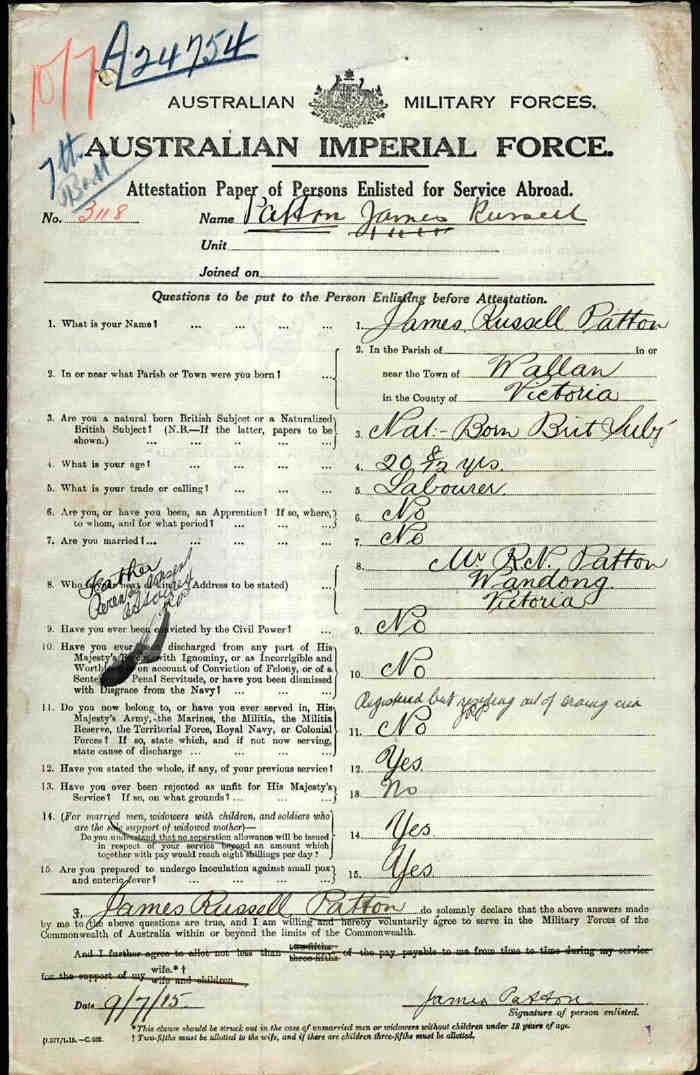 10/7 A24754
AUSTRALIAN MILITARY FORCES.
AUSTRALIAN IMPERIAL FORCE.
7th Batt
Attestation Paper of Persons Enlisted for Service Abroad.
No. 3118 Name Patton James Russell
Unit
Joined on
Questions to be put to the Person Enlisting before Attestation.
1. What is your Name? ... ... ... ... 1. James Russell Patton
2. In or near what Parish or Town were you born? ... 2. In the Parish of in or
near the Town of Wallan
in the County of Victoria
3. Are you a natural born British Subject or a Naturalized
British Subject? (N.B.—If the latter, papers to be
shown.) ... ... ... ... 3. Nat:- Born Brit Subj
4. What is your age? ... ... ... ... 4. 20 8/12 yrs.
5. What is your trade or calling? ... ... ... 5. Labourer.
6. Are you, or have you been, an Apprentice? If so, where,
to whom, and for what period? ... ... ... 6. No
7. Are you married? ... ... ... ... ... 7. No
8. Who (Address to be stated) 8. Mr R.N. Patton
Father Wandong
Victoria
9. Have you ever been convicted by the Civil Power? ... 9. No
10. Have you ever discharged from any part of His
Majesty's with Ignominy, or as Incorrigible and
on account of Conviction of Felony, or of a
Penal Servitude, or have you been dismissed
with Disgrace from the Navy? ... ... ... 10. No
Registered but residing out of area
11. Do you now belong to, or have you ever served in, His
Majesty's Army, the Marines, the Militia, the Militia
Reserve, the Territorial Force, Royal Navy, or Colonial
Forces? If so, state which, and if not now serving,
state cause of discharge ... ... ... 11. No
12. Have you stated the whole, if any, of your previous service? 12. Yes.
13. Have you ever been rejected as unfit for His Majesty's
Service? If so, on what grounds? ... ... ... 13. No
14. (For married men, widowers with children, and soldiers who
are the sole support of widowed mother)—
Do you understand that no separation allowance will be issued
in respect of your service beyond an amount which
together with pay would reach eight shillings per day? 14. Yes.
15. Are you prepared to undergo inoculation against small pox
and enteric fever? ... ... ... ... 15. Yes.
I, James Russell Patton do solemnly declare that the above answers made
by me to the above questions are true, and I am willing and hereby voluntarily agree to serve in the Military Forces of the
Commonwealth of Australia within or beyond the limits of the Commonwealth.
And I further agree to allot not less than two-fifths three-fifths of the pay payable to me from time to time during my service
for the support of my wife.* † wife and children.
Date 9/7/15. James Patton
Signature of person enlisted.
*This clause should be struck out in the case of unmarried men or widowers without children under 18 years of age.
† Two-fifths must be allotted to the wife, and if there are children three-fifths must be allotted.